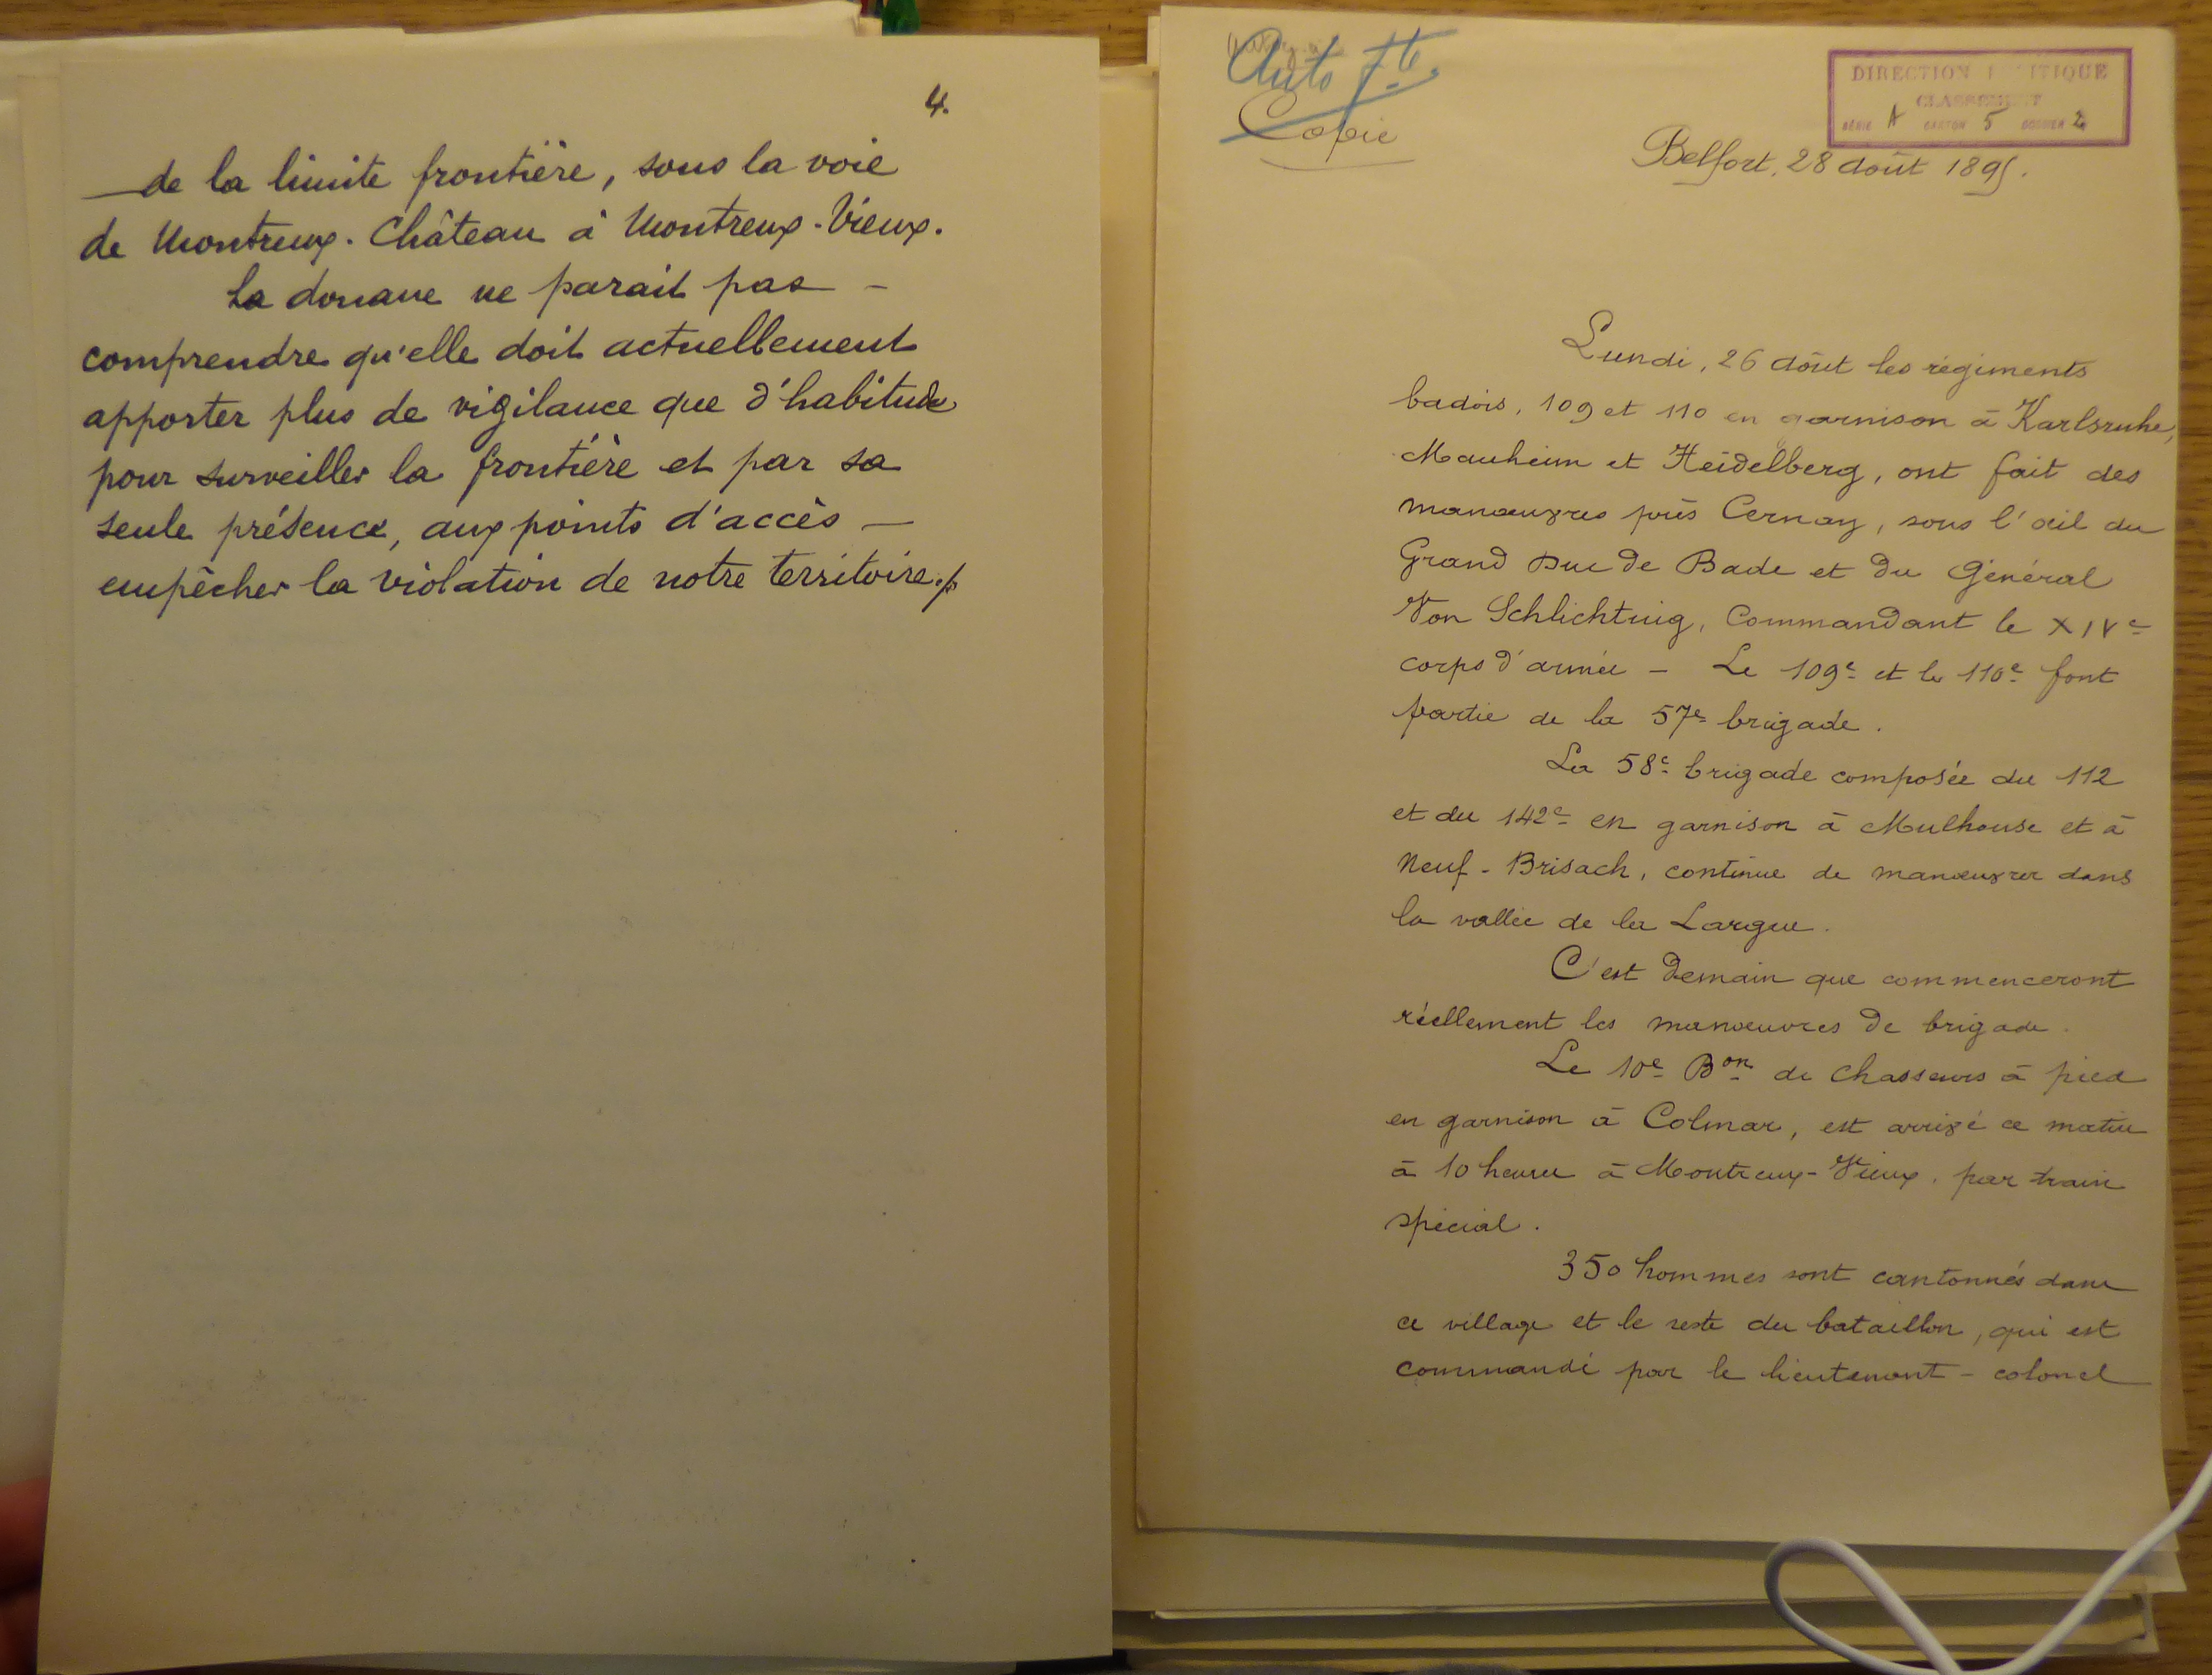 4.
de la limite frontière, sous la voie
de Montreux-Château à Montreux-Vieux.
La douane ne parait pas -
comprendre qu'elle doit actuellement
apporter plus de vigilance que d'habitude
pour surveiller la frontière et par sa
seule présence, aux points d'accès -
empêcher la violation de notre territoire./.
Auto 7te.
Copie
DIRECTION POLITIQUE
CLASSEMENT
SÉRIE A CARTON 5 DOSSIER 2
Belfort, 28 août 1895.
Lundi, 26 août les régiments
badois, 109 et 110 en garnison à Karlsruhe,
Manheim et Heidelberg, ont fait des
manœuvres près Cernay, sous l'œil du
Grand Duc de Bade et du Général
Von Schlichting, Commandant le XIVe
corps d'armée - Le 109e et le 110e font
partie de la 57e brigade.
La 58e brigade composée du 112
et du 142e en garnison à Mulhouse et à
Neuf-Brisach, continue de manœuvrer dans
la vallée de la Largue.
C'est demain que commenceront
réellement les manœuvres de brigade.
Le 10e Bon de Chasseurs à pied
en garnison à Colmar, est arrivé ce matin
à 10 heures à Montreux-Vieux, par train
spécial.
350 hommes sont cantonnés dans
ce village et le reste du bataillon, qui est
commandé par le lieutenant-colonel